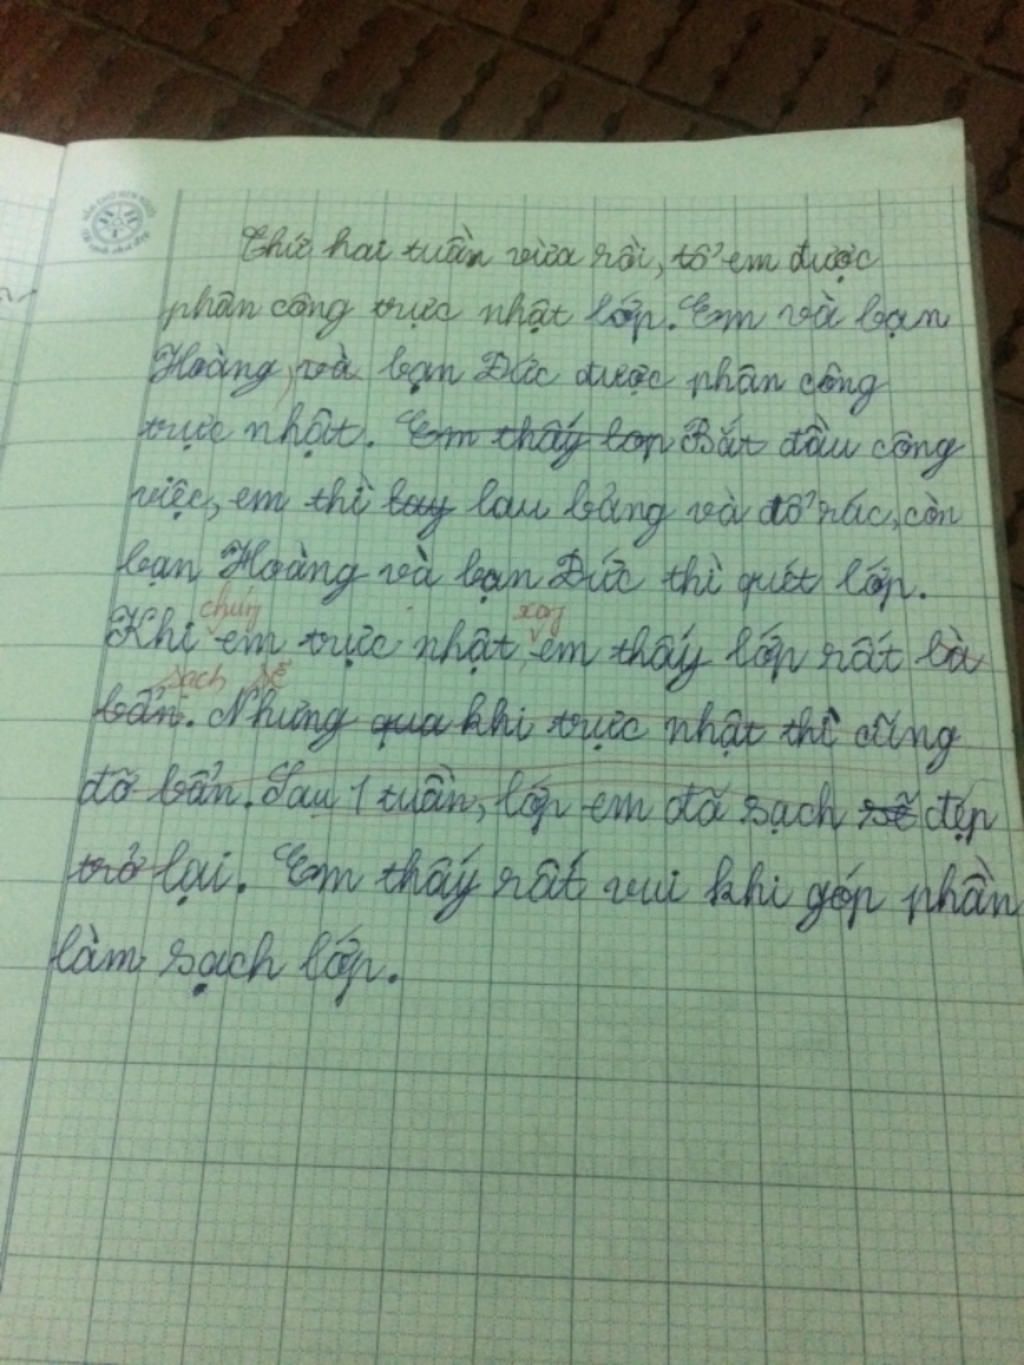 Thứ hai tuần vừa rồi, tổ em được
phân công trực nhật lớp. Em và bạn
Hoàng, và bạn Đức được phân công
trực nhật. Em thấy lop Bắt đầu công
việc, em thì lau bảng và đổ rác, còn
bạn Hoàng và bạn Đức thì quét lớp.
chúng xong
Khi em trực nhật, em thấy lớp rất
sạch sẽ
bẩn. Nhưng qua khi trực nhật thì cũng
đỡ bẩn. Sau 1 tuần, lớp em đã sạch sẽ đẹp
trở lại. Em thấy rất vui khi góp phần
làm sạch lớp.